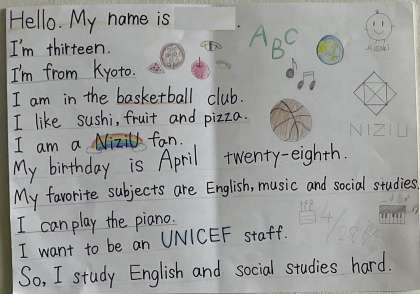 Hello. My name is      .
I'm thirteen.
I'm from Kyoto.
I am in the basketball club.
I like sushi, fruit and pizza.
I am a NiziU fan.
My birthday is April twenty-eighth.
My favorite subjects are English, music and social studies.
I can play the piano.
I want to be an UNICEF staff.
So, I study English and social studies hard.
ABC
NIZIU
4/28